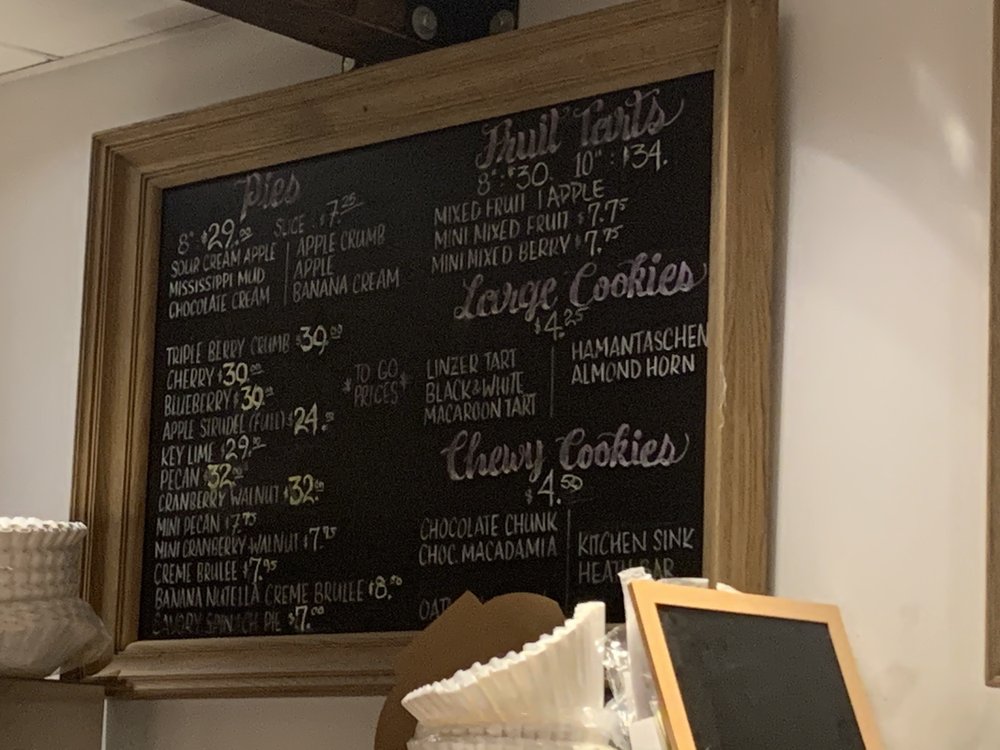 Pies
8": $29.00 SLICE: $7.25
SOUR CREAM APPLE
MISSISSIPPI MUD
CHOCOLATE CREAM
APPLE CRUMB
APPLE
BANANA CREAM
TRIPLE BERRY CRUMB $39.00
CHERRY $30.00
BLUEBERRY $30.00
APPLE STRUDEL (FULL) $24.00
KEY LIME $29.00
PECAN $32.00
CRANBERRY WALNUT $32.00
MINI PECAN $7.95
MINI CRANBERRY-WALNUT $7.95
CREME BRULEE $7.95
BANANA NUTELLA CREME BRULEE $8.50
SAVORY SPINACH PIE $7.00
*TO GO PRICES*
Fruit Tarts
8": $30. 10": $34.
MIXED FRUIT | APPLE
MINI MIXED FRUIT $7.75
MINI MIXED BERRY $7.75
Large Cookies
$4.25
LINZER TART
BLACK & WHITE
MACAROON TART
HAMANTASCHEN
ALMOND HORN
Chewy Cookies
$4.50
CHOCOLATE CHUNK
CHOC. MACADAMIA
KITCHEN SINK
HEATH BAR